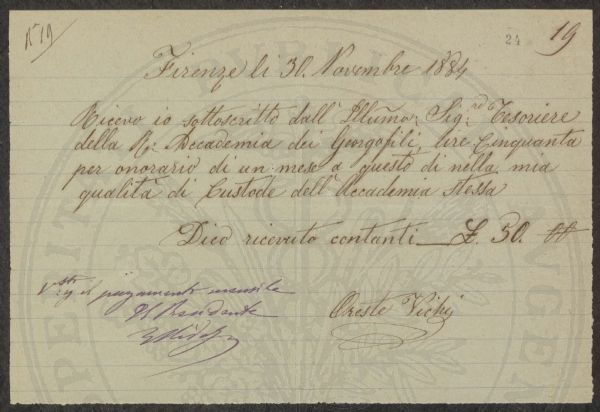 N° 19
24
19
Firenze li 30. Novembre 1884
Ricevo io sottoscritto dall' Illumo: Sig:re Tesoriere
della R. Accademia dei Georgofili, lire Cinquanta
per onorario di un mese a questo dì nella mia
qualità di Custode dell' Accademia stessa
Dico ricevuto contanti £. 50.
Visto il pagamento mensile
Oreste Vichi